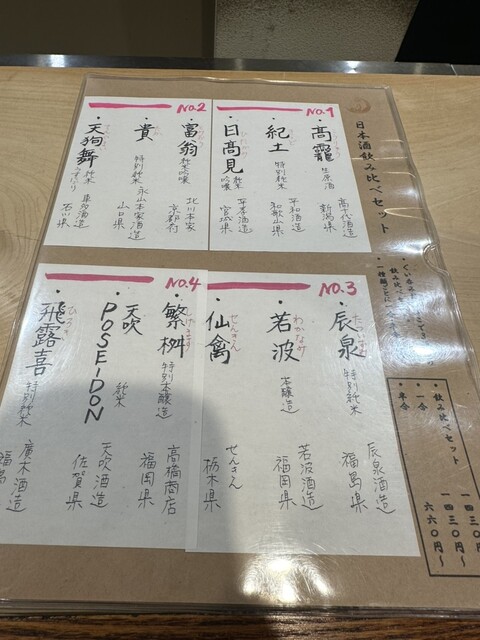 日本酒飲み比べセット
・飲み比べセット 一四三〇円
・一合 一四三〇円〜
・半合 六六〇円〜
No.1
・高龗 生原酒 高代酒造 新潟県
・紀土 特別純米 平和酒造 和歌山県
・日高見 純米吟醸 平孝酒造 宮城県
No.2
・富翁 純米吟醸 北川本家 京都府
・貴 特別純米 永山本家酒造 山口県
・天狗舞 純米 車多酒造 石川県
No.3
・辰泉 特別純米 辰泉酒造 福島県
・若波 わかなみ 本醸造 若波酒造 福岡県
・仙禽 せんきん せんきん 栃木県
No.4
・繁桝 特別本醸造 高橋商店 福岡県
・天吹 POSEIDON 純米 天吹酒造 佐賀県
・飛露喜 特別純米 廣木酒造 福島